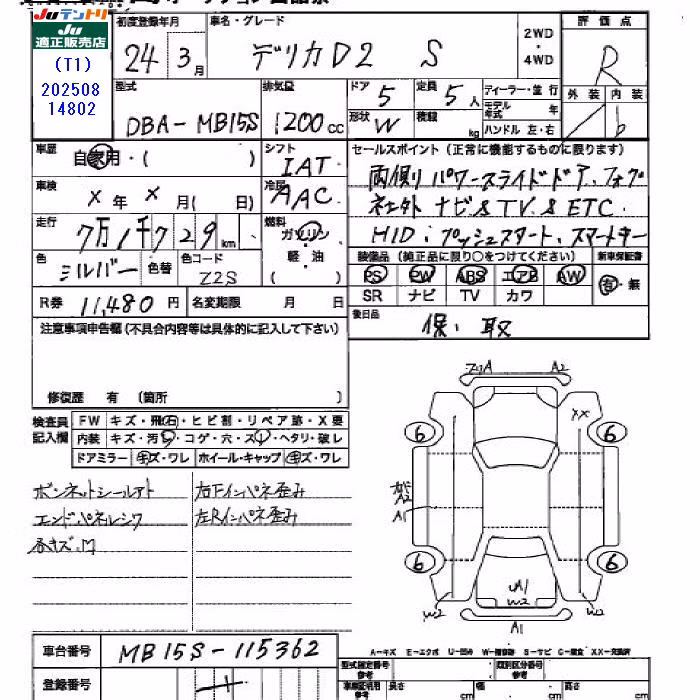 JUテントリ
JU
適正販売店
(T1)
202508
14802
初度登録年月
24 3月
車名・グレード
デリカD2 S
2WD
・
4WD
評価点
R
外装 内装
b
型式
DBA-MB15S
排気量
1200cc
ドア
5
定員
5人
形状
W
積載
kg
ディーラー・並行
モデル年式 年
ハンドル 左・右
車歴
自家用・( )
シフト
IAT
セールスポイント(正常に機能するものに限ります)
両側パワースライドドア、フォグ
社外ナビ&TV&ETC.
HID・プッシュスタート、スマートキー
車検
× 年 × 月( 日)
冷房
AAC
走行
7万1千729km
燃料
ガソリン
・
軽・油
( )
色
シルバー
色替
色コード
Z2S
装備品(純正品に限り○をつけてください)
PS PW ABS エアB AW
SR ナビ TV カワ
新車保証書
有・無
R券 11,480円
名変期限 月 日
後日品
保、取
注意事項申告欄(不具合内容等は具体的に記入して下さい)
修復歴 有 〔箇所 〕
検査員記入欄
FW キズ・飛石・ヒビ割・リペア跡・X要
内装 キズ・汚レ・コゲ・穴・スレ・ヘタリ・破レ
ドアミラー キズ・ワレ ホイール・キャップ キズ・ワレ
ボンネットシールアト
エンドパネルシワ
各キズ.M
右Fインパネ歪み
左Rインパネ歪み
A2
XX
6
6
A2
A1
6
6
W2
W2
W2
A1
A1
車台番号 MB15S-115362
登録番号
A−キズ E−エクボ U−凹み W−補修跡 S−サビ C−腐食 XX−交換済
型式指定番号
参考
類別区分番号
参考
車検証明用
参考
長さ cm
幅 cm
高さ cm